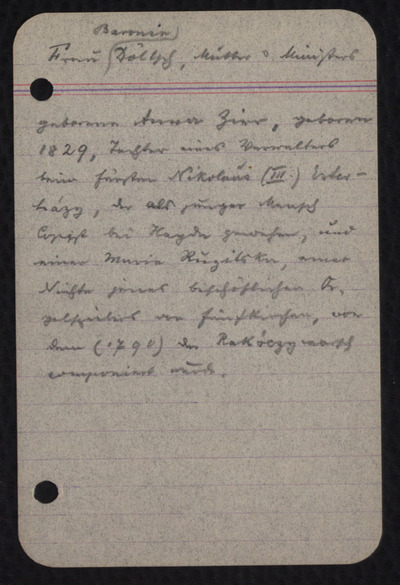 Baronin
Frau Döltsch, Mutter d Ministers
geborene Anna Zier, geboren
1829, Tochter eines Verwalters
beim Fürsten Nikolaus (III.) Ester-
házy, der als junger Mensch
Copist bei Haydn gewesen, und
einer Maria Ruzitska, einer
Nichte jenes bischöflichen Or-
gelspielers von Fünfkirchen, von
dem (1790) der Rakóczymarsch
componiert wurde.